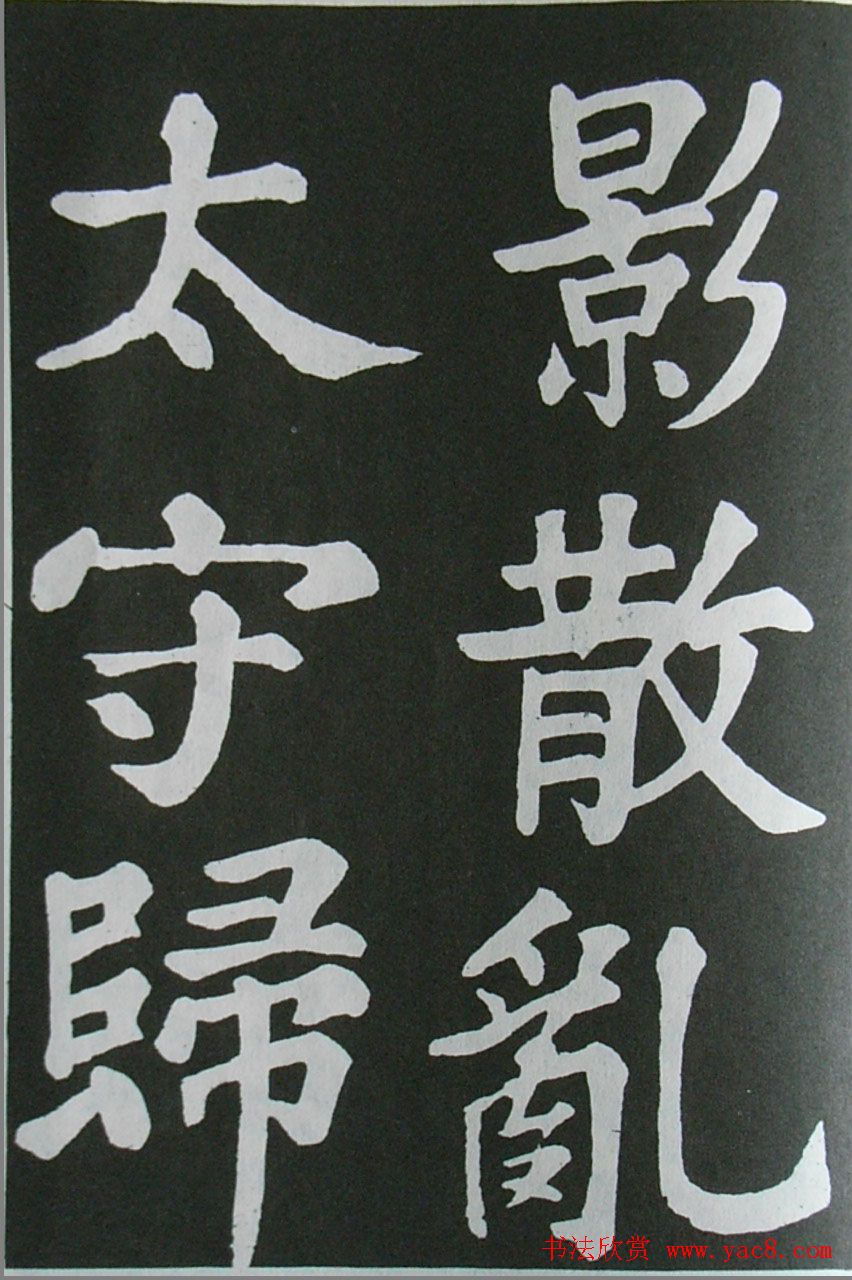 影散亂
太守歸
书法欣赏 www.yac8.com